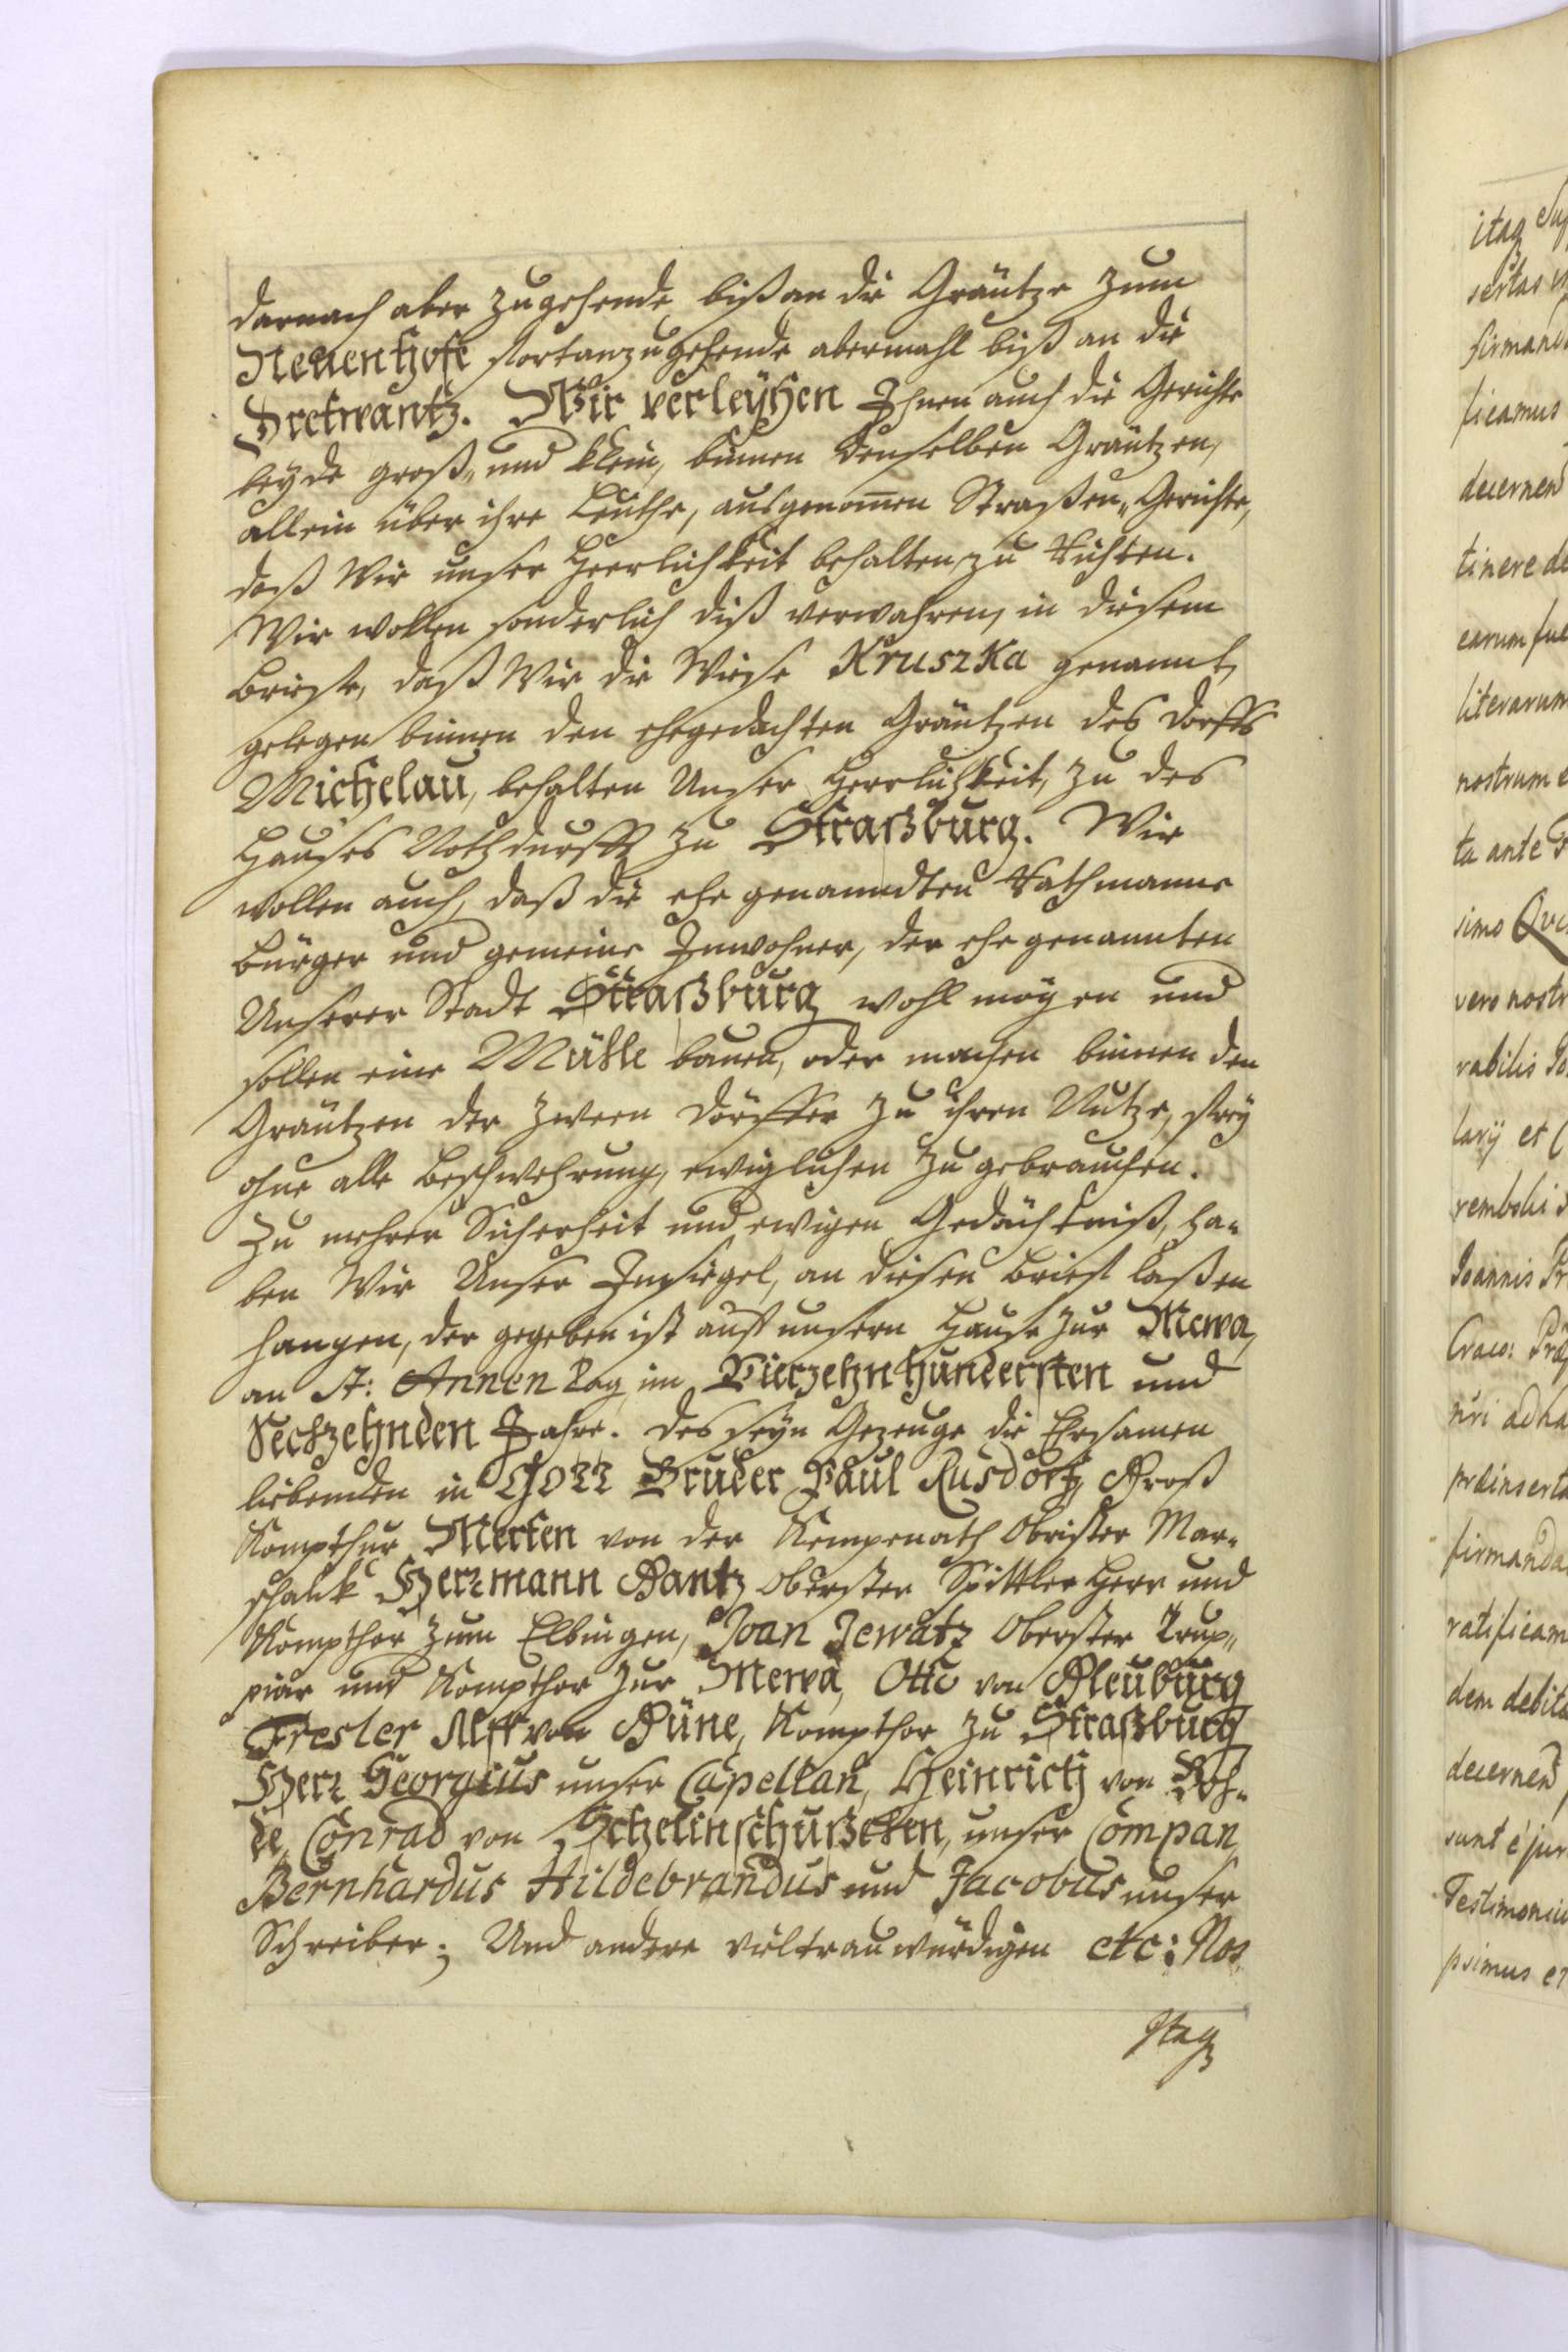 darnach aber zugehende biß an die Gräntze zum
Neuenhofe fortanzugehende abermahl biß an die
Dretwantz. Wir verleyhen Ihnen auch die Gerichte
beyde groß, und klein, binnen denselben Gräntzen,
allein über ihre Leuthe, ausgenom̄en Straßen-Gerichte,
daß Wir unser Herrlichkeit behalten zu richten.
Wir wollen sonderlich diß verwahren, in diesem
Brieffe, daß Wir die Wiese Kruszka genannt,
gelegen binnen den ehegedachten Gräntzen des Dorffs
Michelau, behalten Unser Herrlichkeit, zu des
Hauses Nothdurfft zu Straßburg. Wir
wollen auch, daß die ehe genanndten Rathmanne
Bürger und gemeine Inwohner, der ehe genannten
Unserer Stadt Straßburg wohl mögen und
sollen eine Mühle bauen, oder machen binnen den
Gräntzen der zween Dörffer zu ihren Nutze, frey
ohne alle Beschwehrung, ewiglichen zu gebrauchen.
Zu mehrer Sicherheit und ewigen Gedächtniß, ha-
ben Wir Unser Insiegel, an diesen Brieff laßen
hangen, der gegeben ist auff unsern Hause zur Mewa,
an St: Annen Tag im Vierzehnhundersten und
Sechzehnden Jahre. Des seyn Gezeuge die Ehrsamen
liebenden in GOTT Bruder Paul Rusdorf, Gross
Kompthur Merten von der Kempenath Obrister Mar-
schalk Herrmann Gantz Oberster Spittler Herr und
Kompthor zum Elbingen, Joan Jewatz Oberster Trup-
piar und Kompthor zur Mewa, Otto von
Tresler Alff von Kompthor zu Straßburg
Herr Georgius unser Capellan, Heinrich von Roh-
de, Conrad von unser Compan,
Bernhardus Hildebrandus und Jacobus unser
Schreiber; Und andere viel trauwürdigen etc: Nos
Itaq
itaq
firmand
ficamus
decernen
tinere de
earum fue
literarum
nostrum e
ta ante
simo
vero nostr
rabilis Jo
larÿ et
Joannis
Craco:
nri ad
prdinserta
firmanda
ratificam
dem debita
decernen
sunt
Testimoniu
psimus et